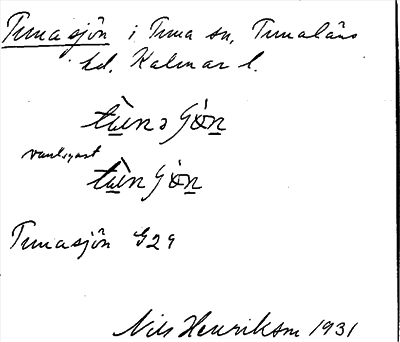 Tunasjön i Tuna sn, Tunaläns
hd. Kalmar l.
tùnəʃón
vanligast
tùnʃón
Tunasjön G29
Nils Henrikson 1931